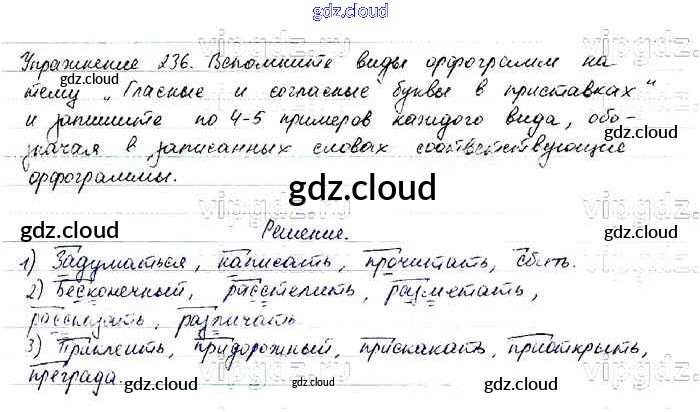 gdz.cloud
Упражнение 236. Вспомните виды орфограмм на
gdz.cloud gdz.cloud
тему „Гласные и согласные буквы в приставках"
и запишите по 4-5 примеров каждого вида, обо-
значая в записанных словах соответствующие
орфограммы.
gdz.cloud
vipgdz.
gdz.cloud Решение. gdz.cloud
1) Задуматься, написать, прочитать, сбить.
2) Бесконечный, расстелить, разметать,
рассказать, различать.
3) Приклеить, придорожный, прискакать, приоткрыть,
преграда.
gdz.cloud gdz.cloud gdz.cloud